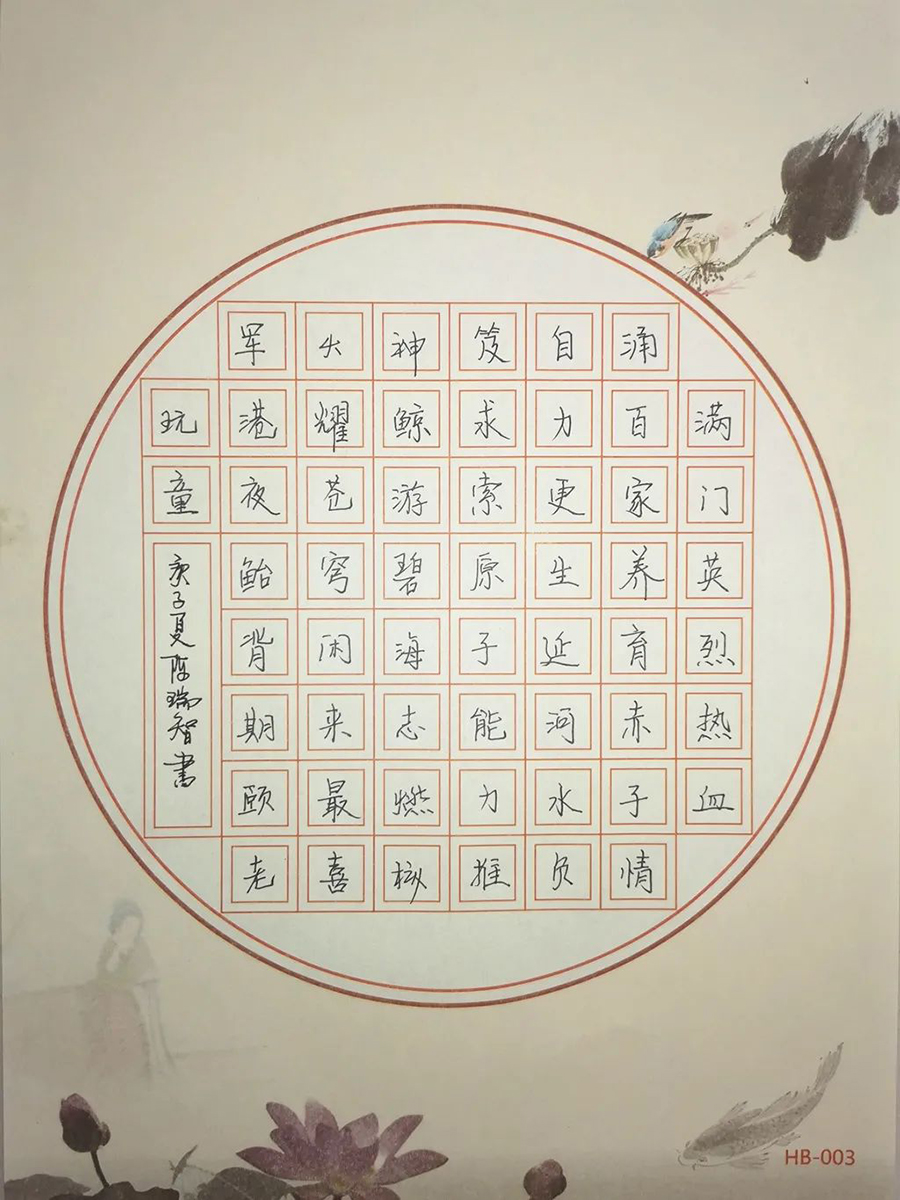 满门英烈热血
涌百家养育赤子情
自力更生延河水负
笈求索原子能力推
神鲸游碧海志燃核
火耀苍穹闲来最喜
军港夜鲐背期颐老
玩童
庚子夏陈瑞智書
HB-003